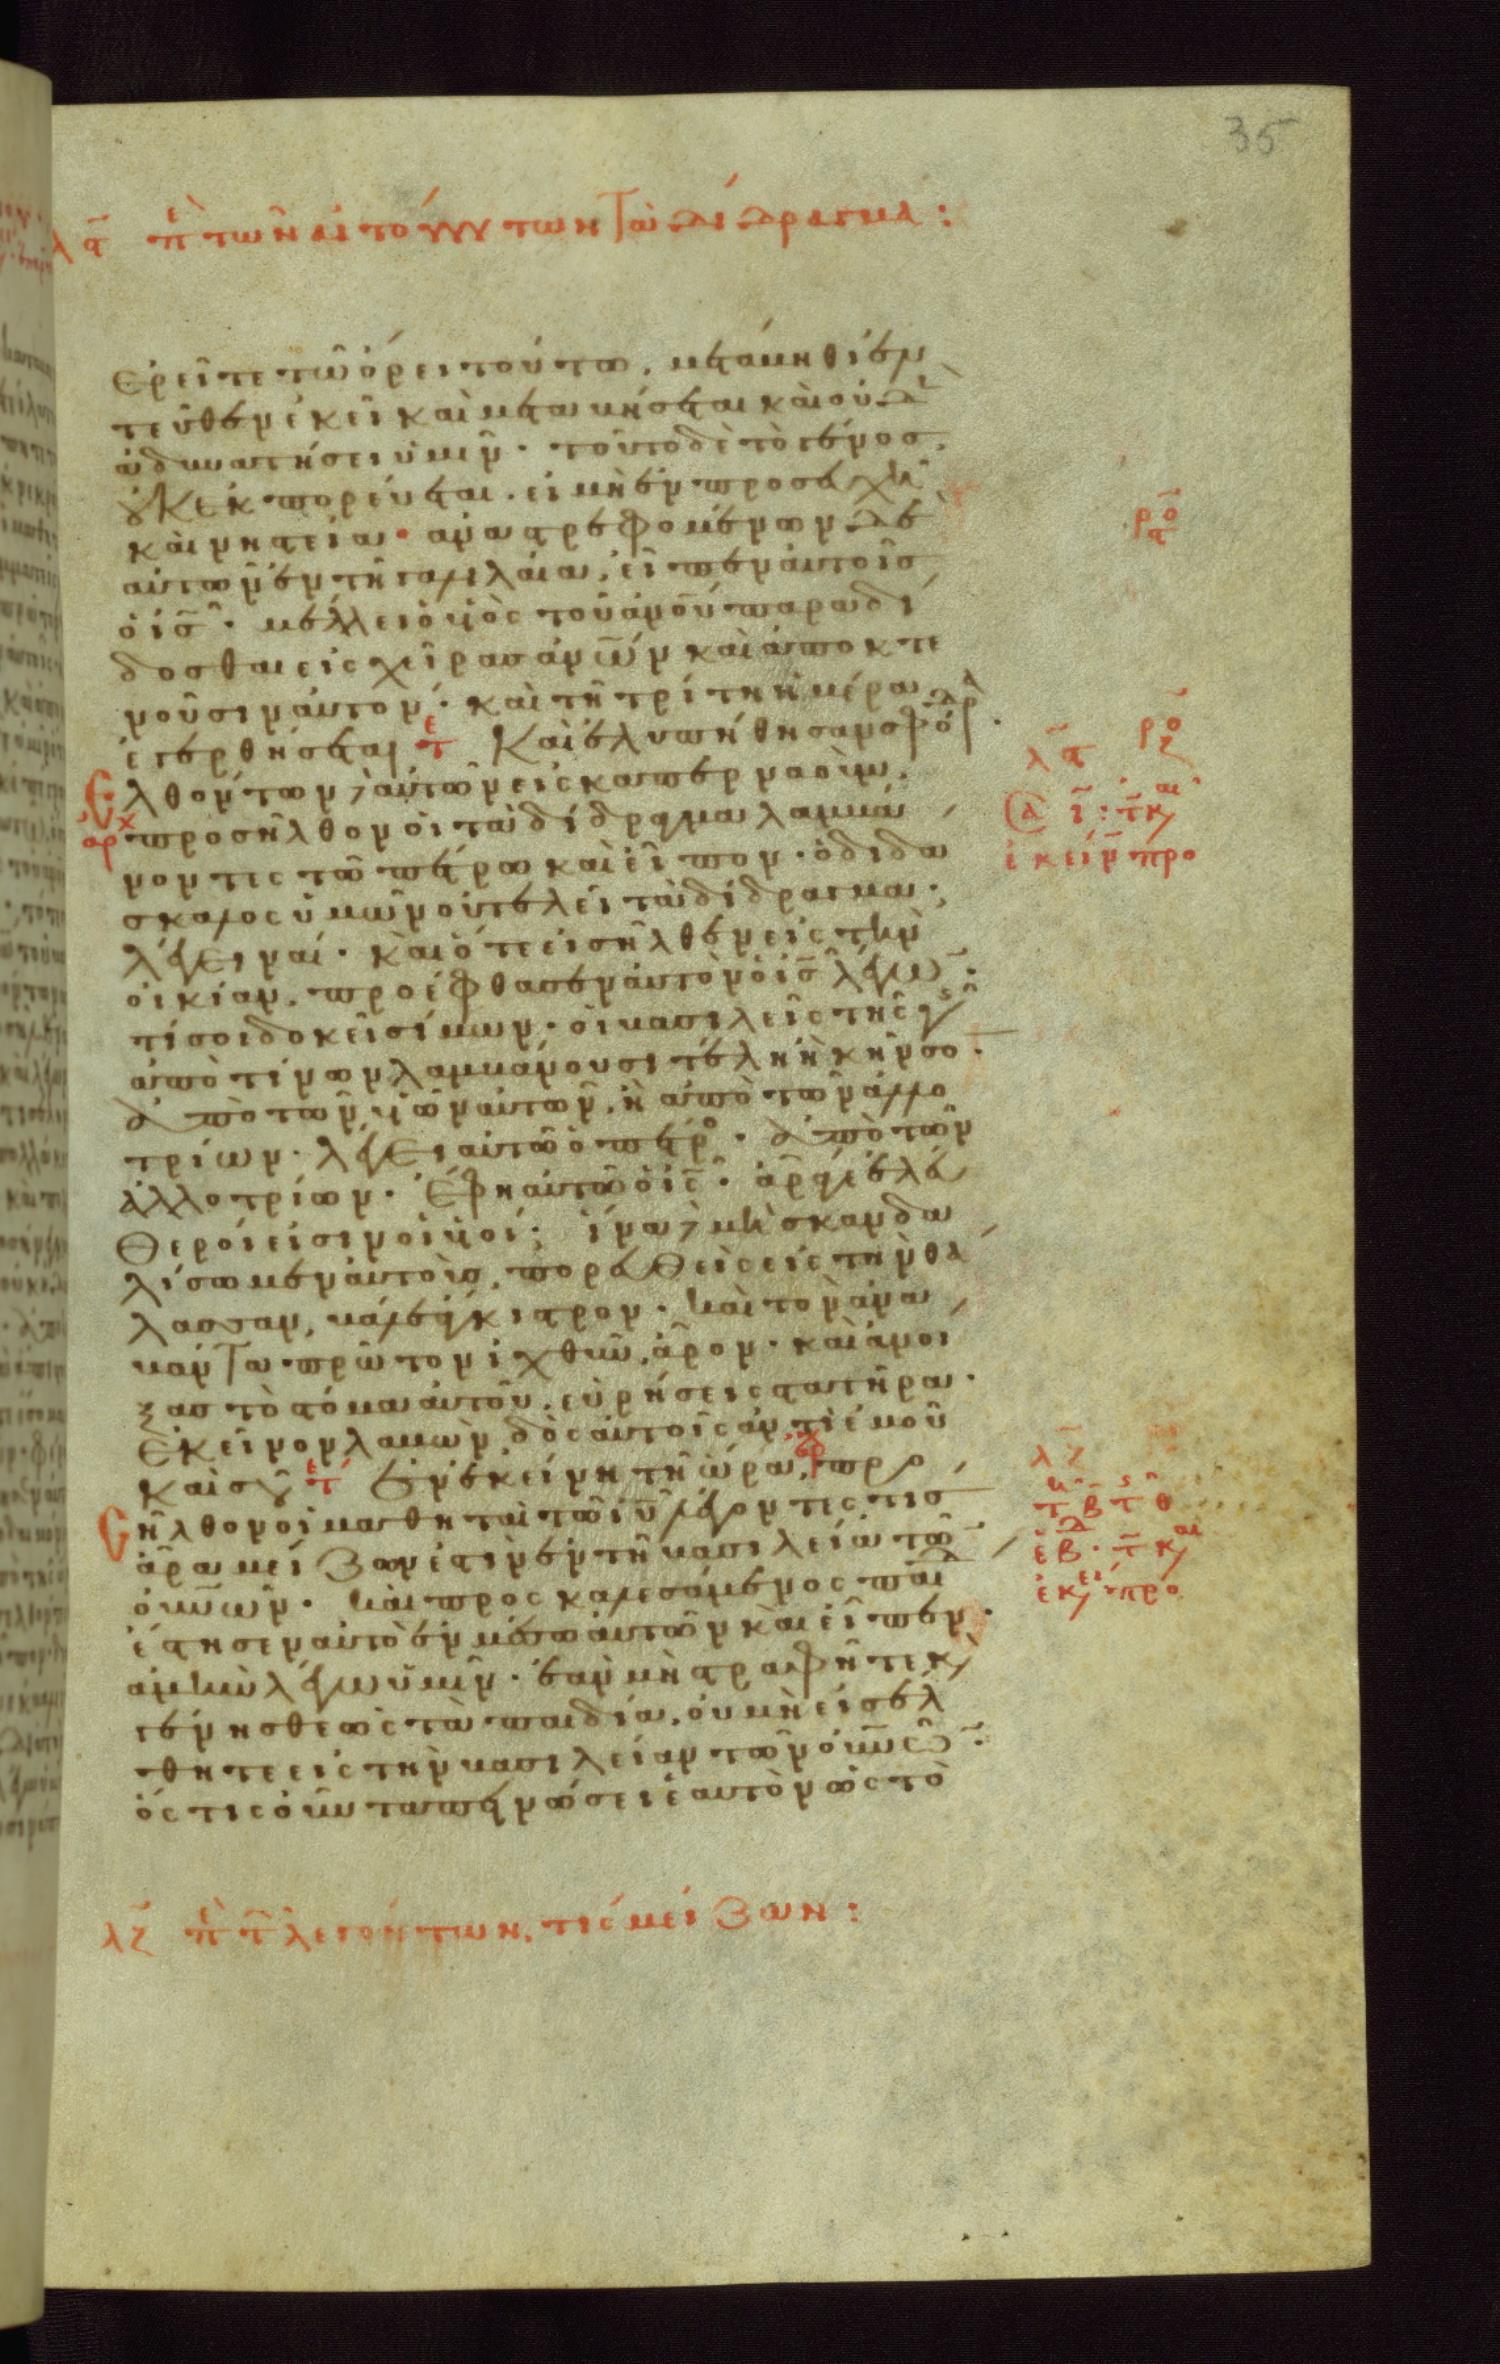 35
λα πε των αιτούντων τὰ δίδραγμα :
ἐρεῖτε τῶ ὄρει τούτω, μετάβηθι ἐν
τεῦθεν ἐκεῖ καὶ μεταβήσεται καὶ οὐδὲν
ἀδυνατήσει ὑμῖν · τοῦτο δὲ τὸ γένος,
οὐκ ἐκπορεύεται · εἰ μὴ ἐν προσευχῆ
καὶ νηστεία · ἀναστρεφομένων δὲ
αὐτῶν ἐν τῆ γαλιλαία, εἶπεν αὐτοῖς
ὁ ις · μέλλει ὁ υἱὸς τοῦ ἀνου παραδί
δοσθαι εἰς χεῖρας ἀνων καὶ ἀποκτε
νοῦσιν αὐτόν · καὶ τῆ τρίτη ἡμέρα
ἐγερθήσεται τε Καὶ ἐλυπήθησαν σφόδρα ·
Ελθόντων αὐτῶν εἰς καπερναούμ,
αρχ προσῆλθον οἱ τὰ δίδραγμα λαμβά
νοντες τῶ πέτρω καὶ εἶπον · ὁ διδά
σκαλος ὑμῶν οὐ τελεῖ τὰ δίδραγμα ;
λέγει ναί · καὶ ὅτε εἰσῆλθεν εἰς τὴν
οἰκίαν, προέφθασεν αὐτὸν ὁ ις λέγων ·
τί σοι δοκεῖ σίμων · οἱ βασιλεῖς τῆς γῆς
ἀπὸ τίνων λαμβάνουσι τέλη ἢ κῆνσον ·
ἀπὸ τῶν υἱῶν αὐτῶν, ἢ ἀπὸ τῶν ἀλλο
τρίων · λέγει αὐτῶ ὁ πέτρος · ἀπὸ τῶν
ἀλλοτρίων · Ἔφη αὐτῶ ὁ ις · ἄραγε ἐλεύ
θεροί εἰσιν οἱ υἱοί ; ἵνα μὴ σκανδα
λίσωμεν αὐτοὺς, πορευθεὶς εἰς τὴν θά
λασσαν, βάλε ἄγκιστρον · καὶ τὸν ἀνα
βάντα πρῶτον ἰχθὺν, ἆρον · καὶ ἀνοί
ξας τὸ στόμα αὐτοῦ, εὑρήσεις στατῆρα ·
ἐκεῖνον λαβὼν, δὸς αὐτοῖς ἀντὶ ἐμοῦ
καὶ σοῦ τε Ἐν ἐκείνη τῆ ὥρα, προ
σῆλθον οἱ μαθηταὶ τῶ ιυ λέγοντες τίς
ἄρα μείζων ἐστὶν ἐν τῆ βασιλεία τῶν
οὐνων · καὶ προσκαλεσάμενος παιδ
ἔστησεν αὐτὸ ἐν μέσω αὐτῶν καὶ εἶπεν ·
ἀμὴν λέγω ὑμῖν · ἐὰν μὴ στραφῆτε καὶ
γένησθε ὡς τὰ παιδία, οὐ μὴ εἰσέλ
θητε εἰς τὴν βασιλείαν τῶν οὐνων ·
ὅστις οὖν ταπεινώσει ἑαυτὸν ὡς τὸ
λζ πε τ λεγόντων, τίς μείζων :
ροα
ροζ
λα
ι : τ κ
ἐκείν προ
λζ
τ β τ θ
ε β · τ κ
ἐκει προ